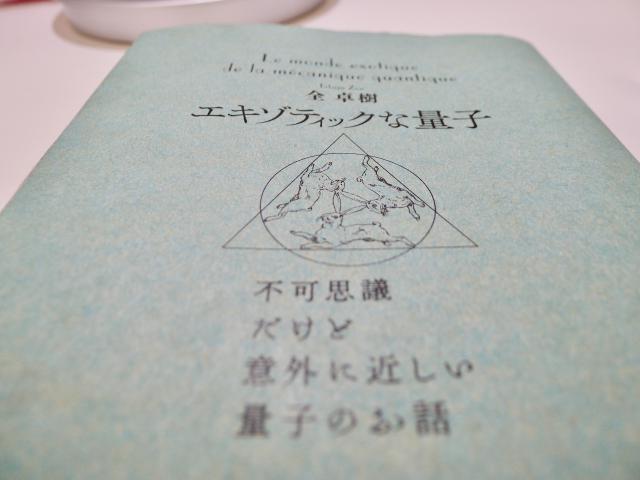 Le monde exotique
de la mécanique quantique
全 卓樹
エキゾティックな量子
不可思議
だけど
意外に近しい
量子のお話